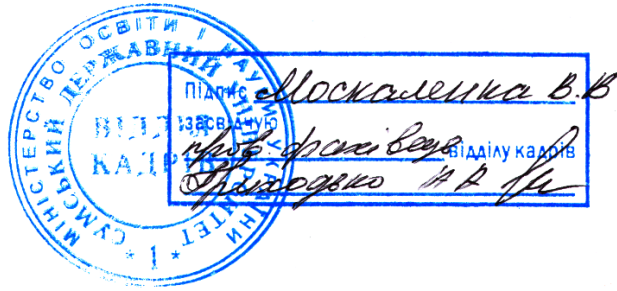 МІНІСТЕРСТВО ОСВІТИ І НАУКИ УКРАЇНИ
СУМСЬКИЙ ДЕРЖАВНИЙ УНІВЕРСИТЕТ
ВІДДІЛ
КАДРІВ
* 1 *
Підпис Москаленка В.В
засвідчую
пров фахівець відділу кадрів
Приходько